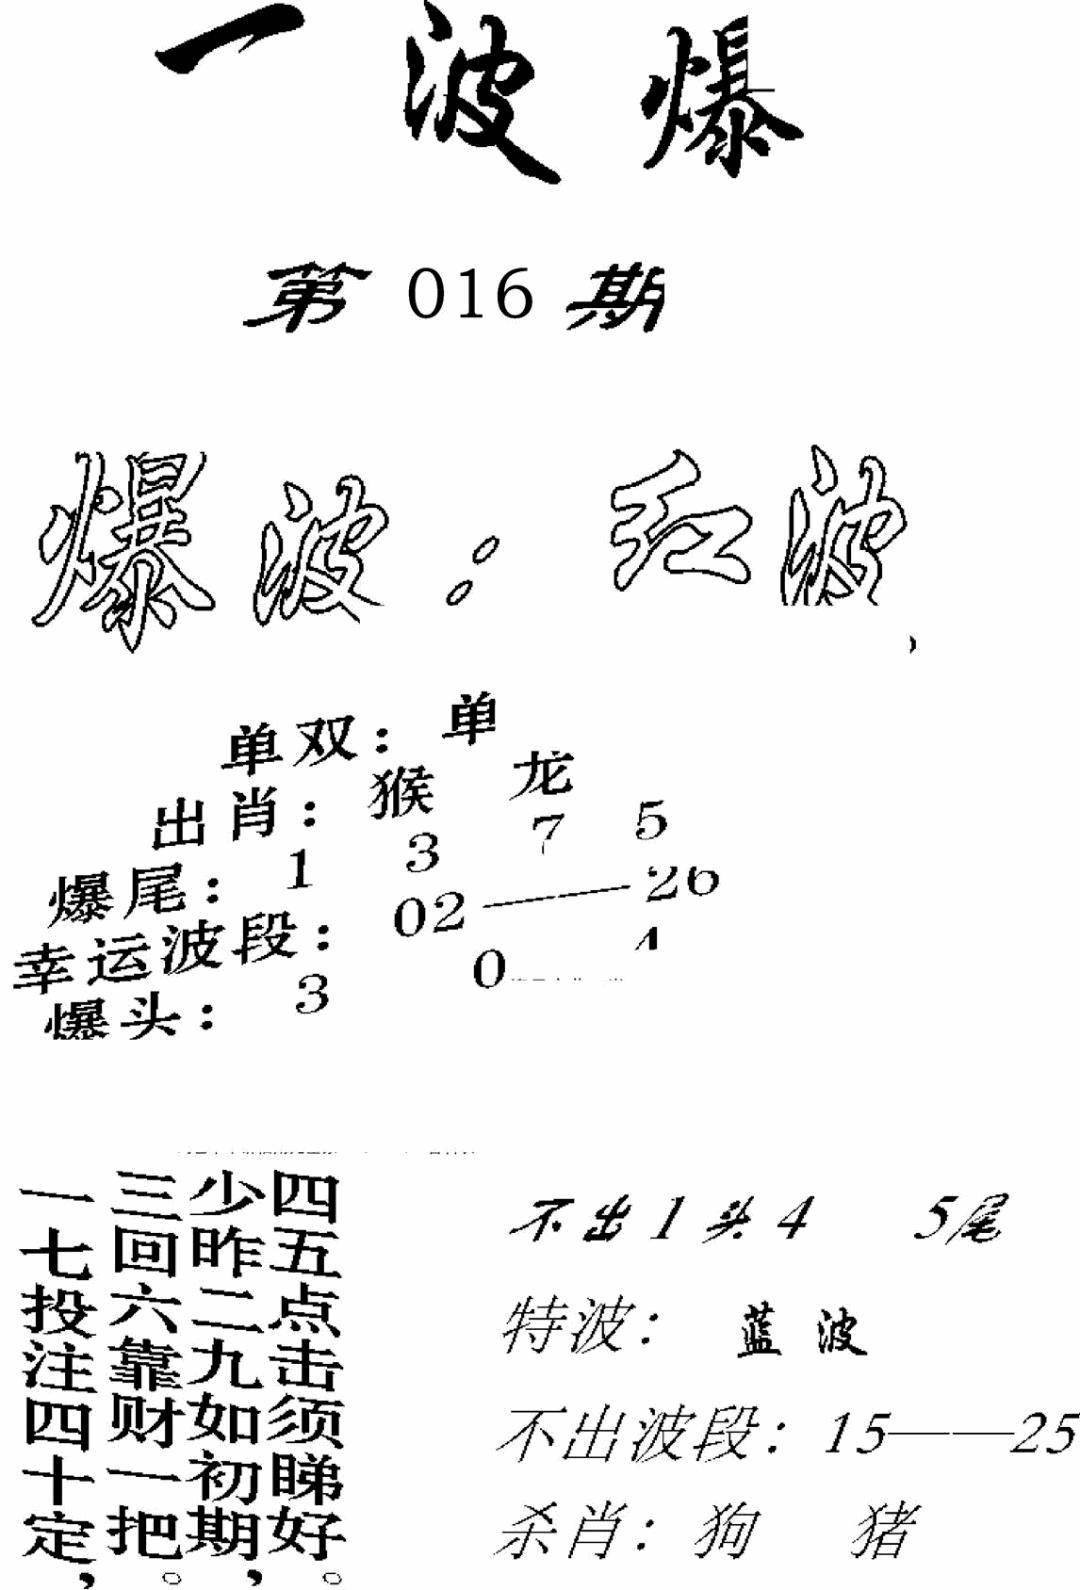 一波爆
第016期
爆波：红波
单双：单
出肖：猴 龙
爆尾：1 3 7 5
幸运波段：02——26
爆头：3 0
四五点击须睇好。
少昨二九如初期，
三回六靠财一把。
一七投注四十定，
不出1头4 5尾
特波：蓝波
不出波段：15——25
杀肖：狗 猪